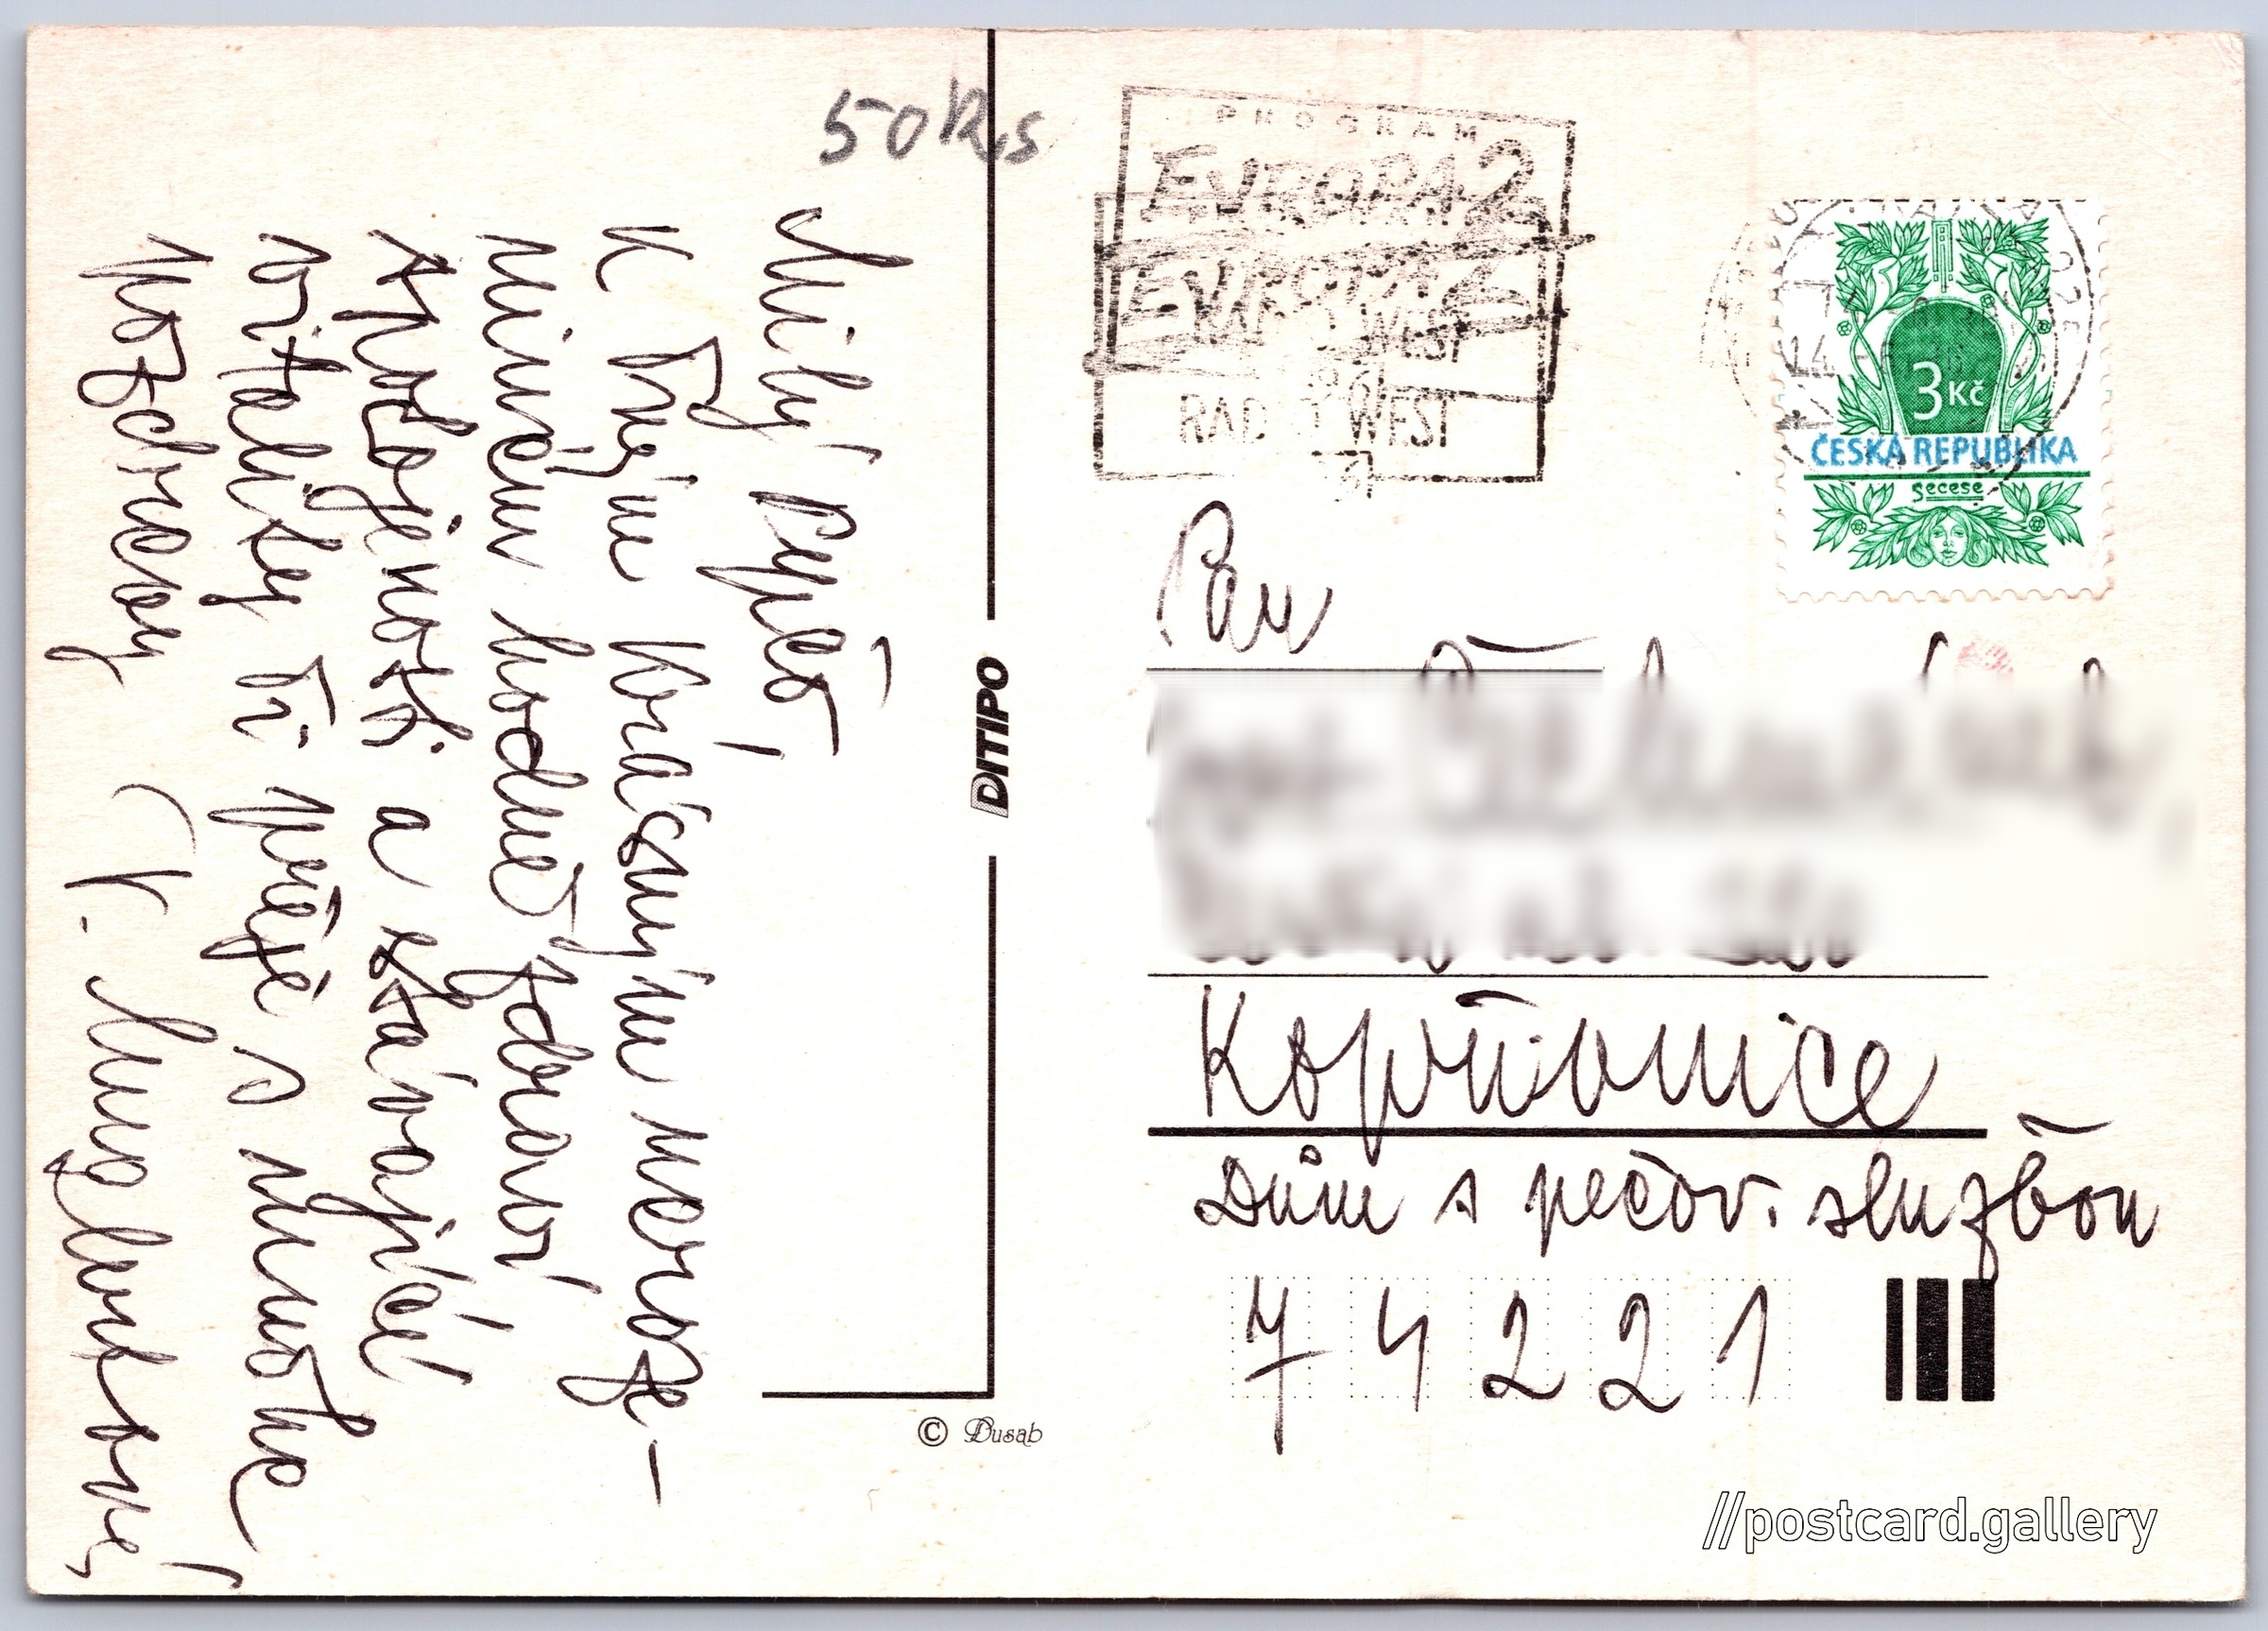 50 Kčs
Milý Pepčo,
K Tvým krásným naroze-
ninám hodně zdraví
spokojenosti a stávající
vitality Ti přeje s mnoha
pozdravy
PROGRAM
EVROPA 2
EVROPA 2
RADIO WEST
RADIO WEST
3 Kč
ČESKÁ REPUBLIKA
Secese
Pan
Kopřivnice
Dům s pečov. službou
74221
DITIPO
© Dusab
//postcard.gallery